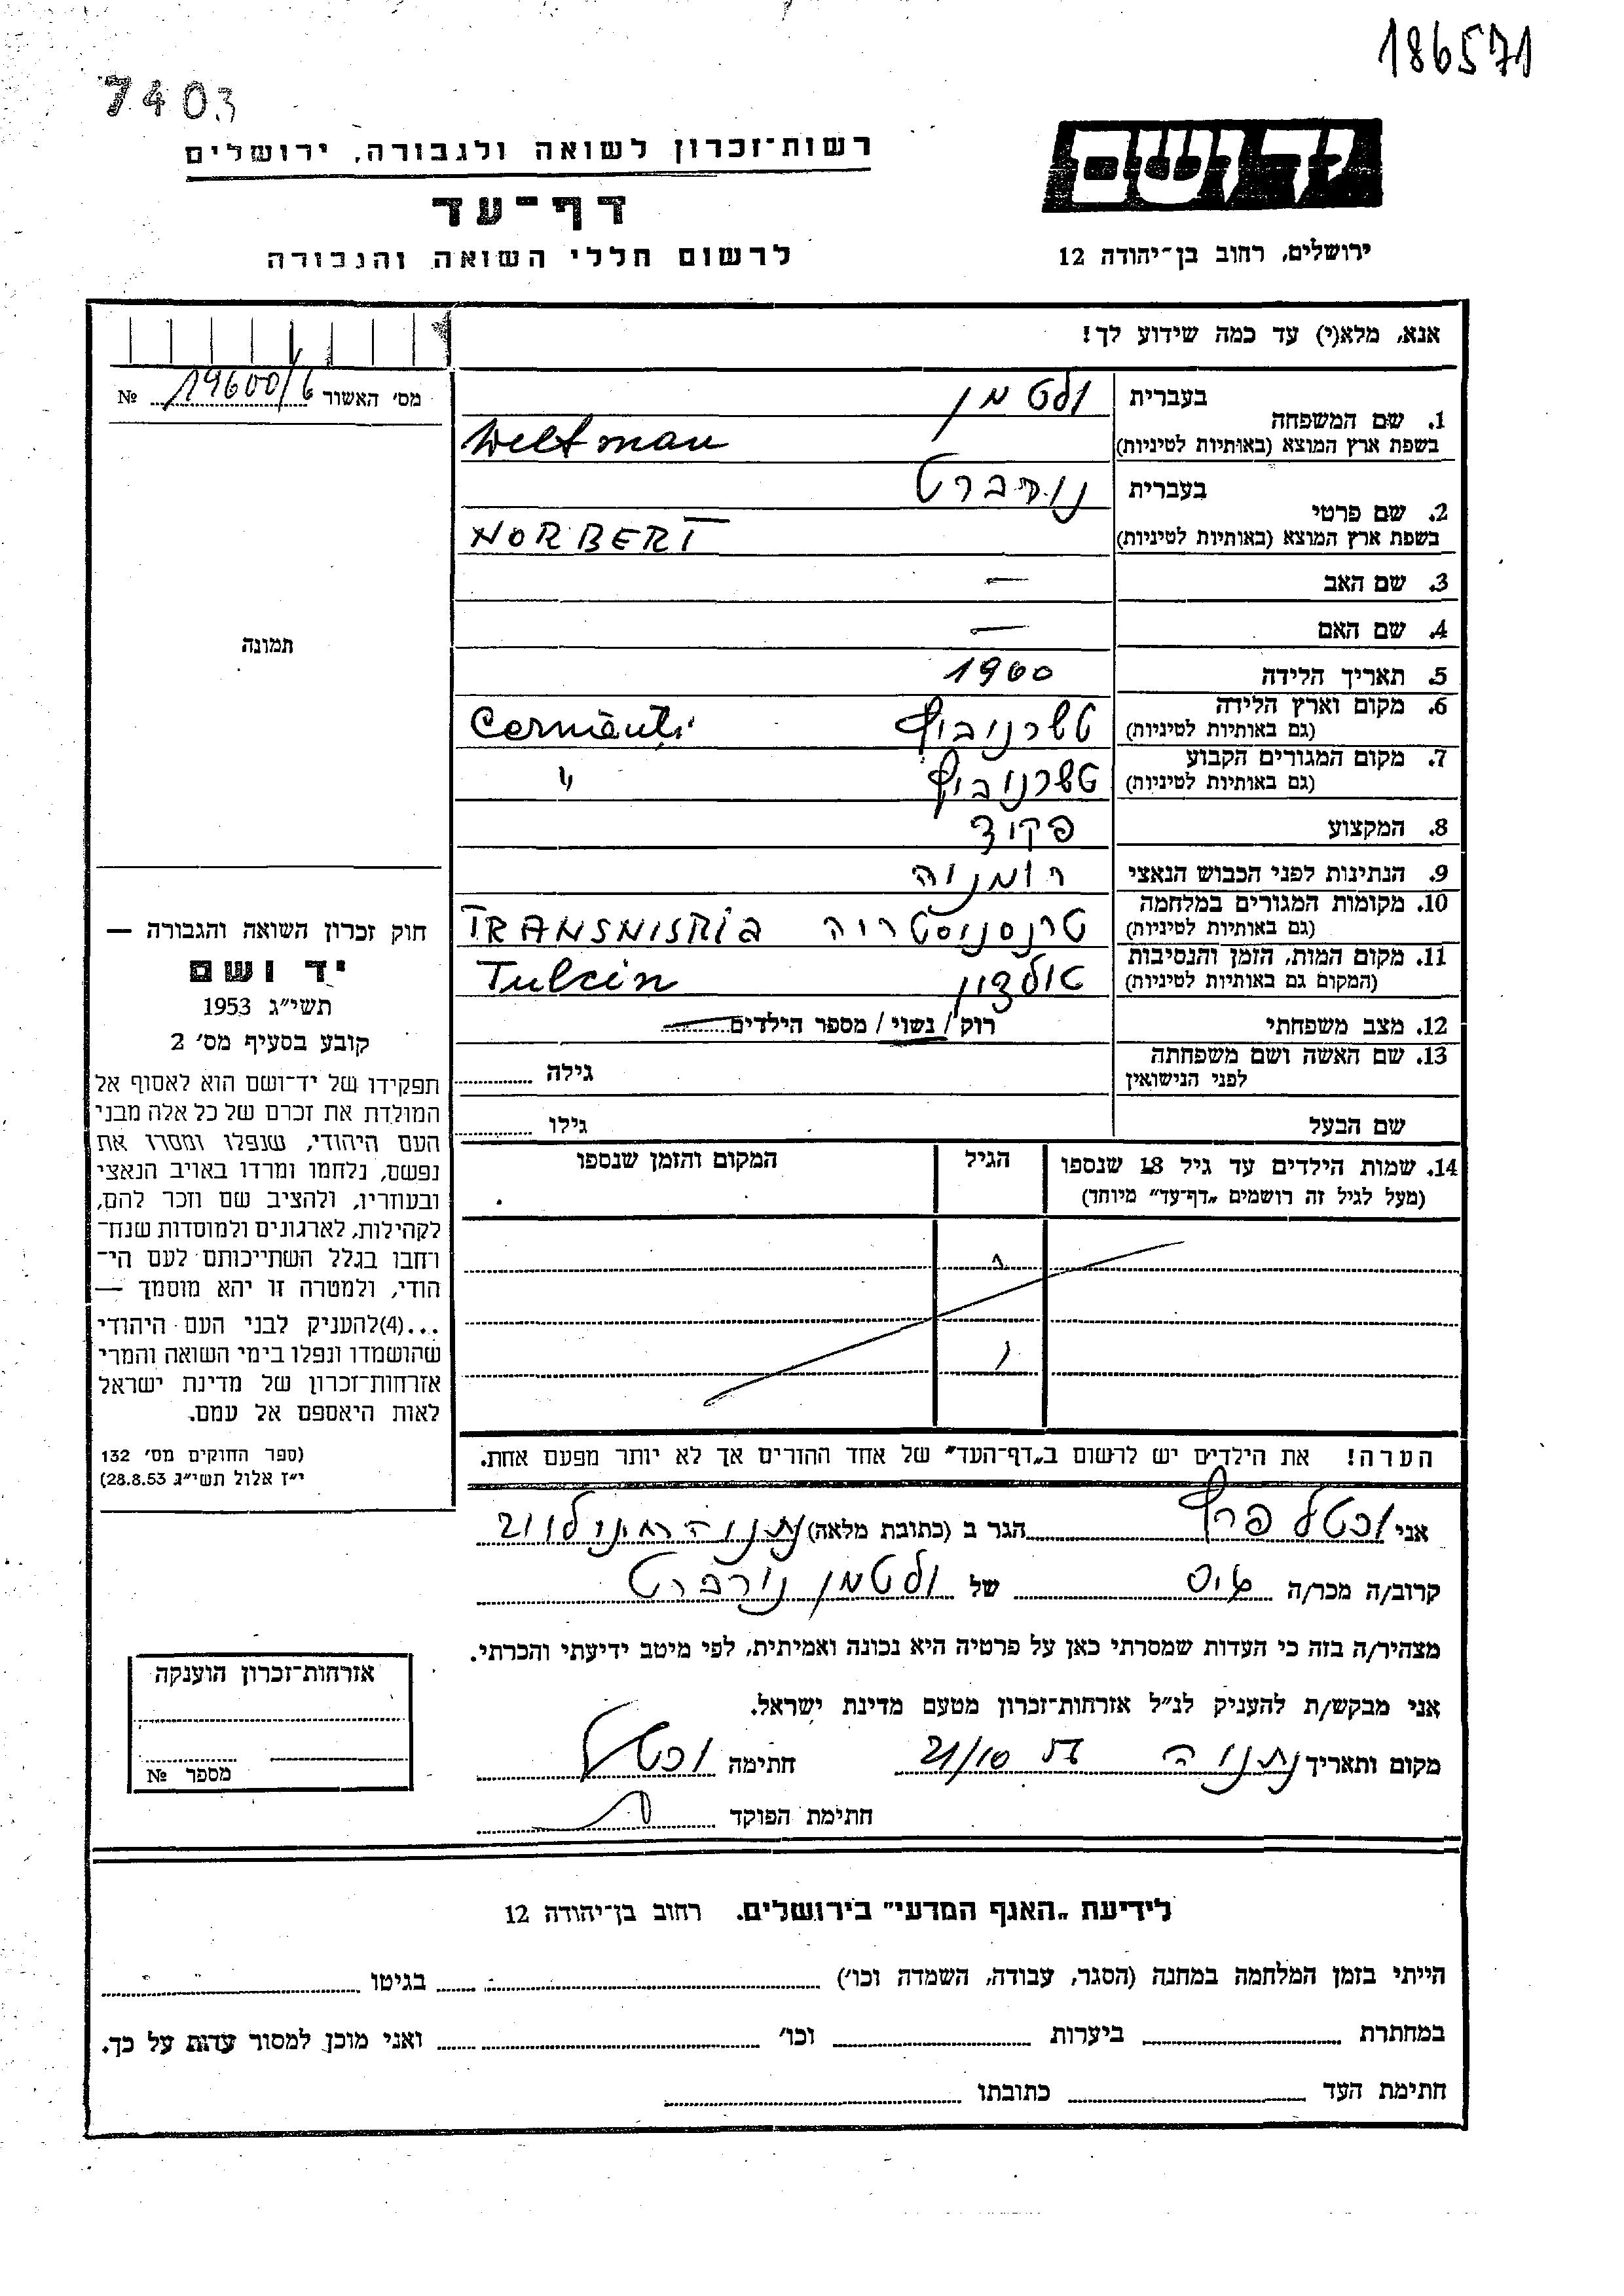 186571
7403
יד ושם
רשות־זכרון לשואה ולגבורה, ירושלים
דף־עד
לרשום חללי השואה והגבורה
ירושלים, רחוב בן־יהודה 12
אנא, מלא(י) עד כמה שידוע לך!
מס׳ האשור 19600/6 №
1. שם המשפחה
בעברית ולטמן
בשפת ארץ המוצא (באותיות לטיניות) Weltman
2. שם פרטי
בעברית נורברט
בשפת ארץ המוצא (באותיות לטיניות) NORBERT
3. שם האב —
4. שם האם —
5. תאריך הלידה 1900
6. מקום וארץ הלידה
(גם באותיות לטיניות) טשרנוביץ Cernăuți
7. מקום המגורים הקבוע
(גם באותיות לטיניות) טשרנוביץ "
8. המקצוע פקיד
9. הנתינות לפני הכבוש הנאצי רומניה
10. מקומות המגורים במלחמה
(גם באותיות לטיניות) טרנסניסטריה TRANSNISRIA
11. מקום המות, הזמן והנסיבות
(המקום גם באותיות לטיניות) טולצין Tulcin
12. מצב משפחתי רוק / נשוי / מספר הילדים
13. שם האשה ושם משפחתה
לפני הנישואין גילה
שם הבעל גילו
14. שמות הילדים עד גיל 18 שנספו
(מעל לגיל זה רושמים „דף־עד” מיוחד)
הגיל
המקום והזמן שנספו
הערה! את הילדים יש לרשום ב„דף־העד” של אחד ההורים אך לא יותר מפעם אחת.
תמונה
חוק זכרון השואה והגבורה —
יד ושם
תשי״ג 1953
קובע בסעיף מס׳ 2
תפקידו של יד־ושם הוא לאסוף אל
המולדת את זכרם של כל אלה מבני
העם היהודי, שנפלו ומסרו את
נפשם, נלחמו ומרדו באויב הנאצי
ובעוזריו, ולהציב שם וזכר להם,
לקהילות, לארגונים ולמוסדות שנח־
רחבו בגלל השתייכותם לעם הי־
הודי, ולמטרה זו יהא מוסמך —
...(4)להעניק לבני העם היהודי
שהושמדו ונפלו בימי השואה והמרי
אזרחות־זכרון של מדינת ישראל
לאות היאספם אל עמם.
(ספר החוקים מס׳ 132
י״ז אלול תשי״ג 28.8.53)
אני וכטל הגר ב (כתובת מלאה) נתניה
קרוב/ה מכר/ה של ולטמן נורברט
מצהיר/ה בזה כי העדות שמסרתי כאן על פרטיה היא נכונה ואמיתית, לפי מיטב ידיעתי והכרתי.
אני מבקש/ת להעניק לנ״ל אזרחות־זכרון מטעם מדינת ישראל.
מקום ותאריך נתניה 21/10 חתימה וכטל
חתימת הפוקד
אזרחות־זכרון הוענקה
מספר №
לידיעת „האגף המדעי” בירושלים, רחוב בן־יהודה 12
הייתי בזמן המלחמה במחנה (הסגר, עבודה, השמדה וכו׳) בגיטו
במחתרת ביערות וכו׳ ואני מוכן למסור עדות על כך.
חתימת העד כתובתו